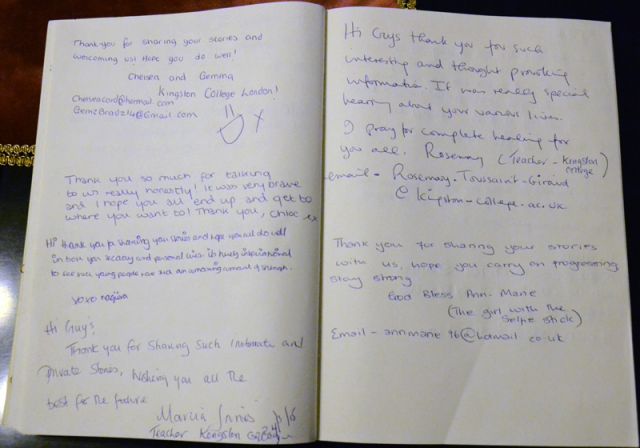 Thank you for sharing your stories and
welcoming us! Hope you do well!
Chelsea and Gemma
Kingston College London!
Chelseacord@hotmail.com
@Gmail.com
x
Thank you so much for talking
to us really honestly! It was very brave
and I hope you all end up and get to
where you want to! Thank you, Chloe x
Hi thank you for sharing your stories and hope you all do well
in both your academy and personal lives. Its truely inspirational
to see such young people have such an amazing amount of strength.
xoxo
Hi Guy's
Thank you for sharing such intimate and
private stories, wishing you all the
best for the future
Marcia Innis
Teacher Kingston College
Hi Guys thank you for such
interesting and thought provoking
information. It was really special
hearing about your various lives.
I pray for complete healing for
you all. Rosemary (Teacher - Kingston
college)
email - Rosemary.Toussaint-Giraud
@ Kingston-college.ac.uk
Thank you for sharing your stories
with us, hope you carry on progressing
stay strong
God Bless Ann-Marie
(The girl with the
selfie stick)
Email - annmarie96@hotmail.co.uk